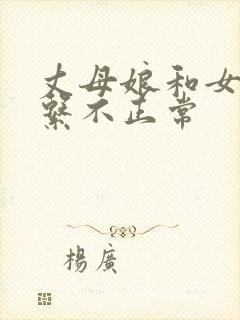 丈母娘和女
繫不正常
楊廣